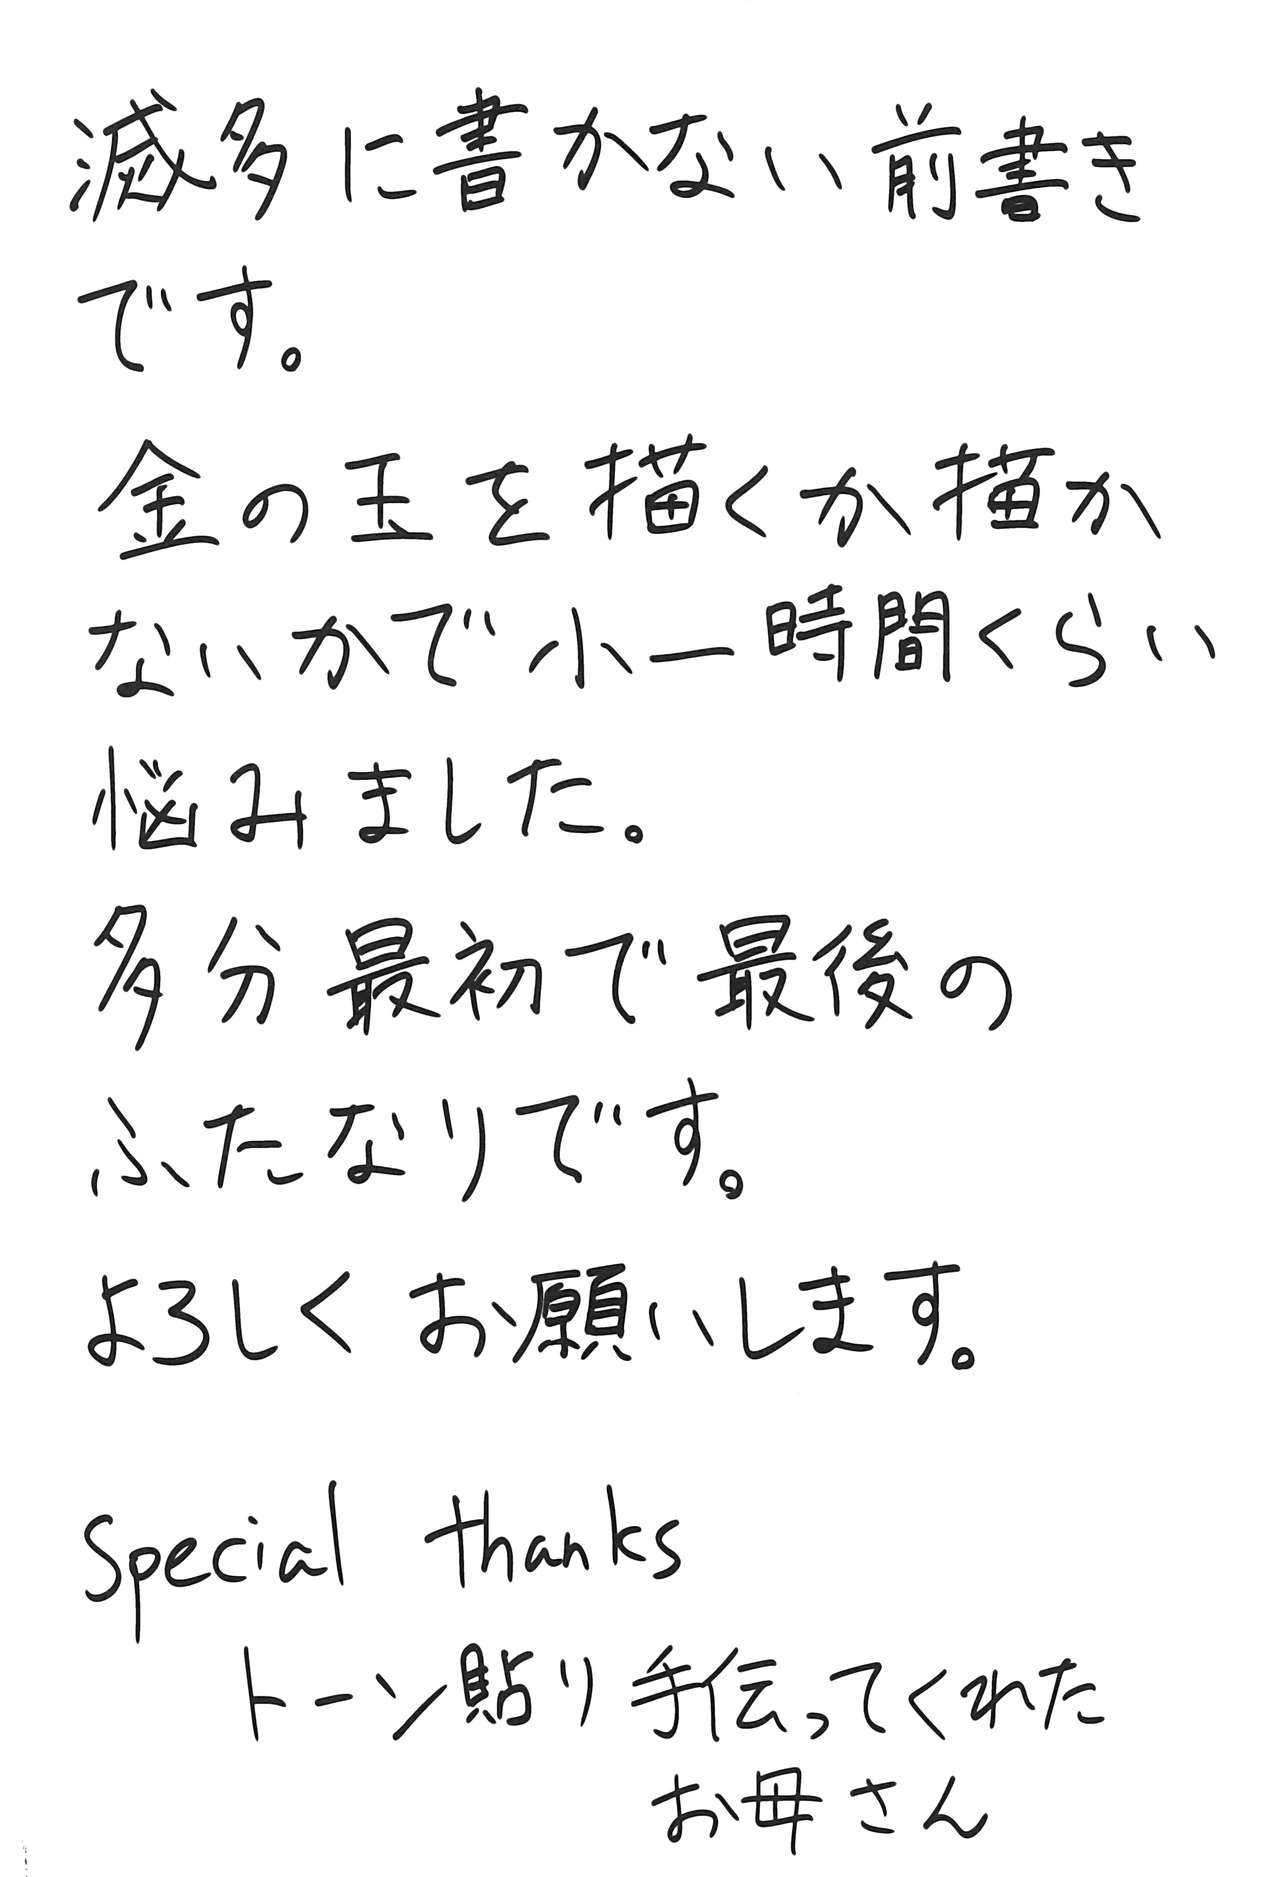 滅多に書かない前書き
です。
金の玉を描くか描か
ないかで小一時間くらい
悩みました。
多分最初で最後の
ふたなりです。
よろしくお願いします。
Special thanks
トーン貼り手伝ってくれた
お母さん